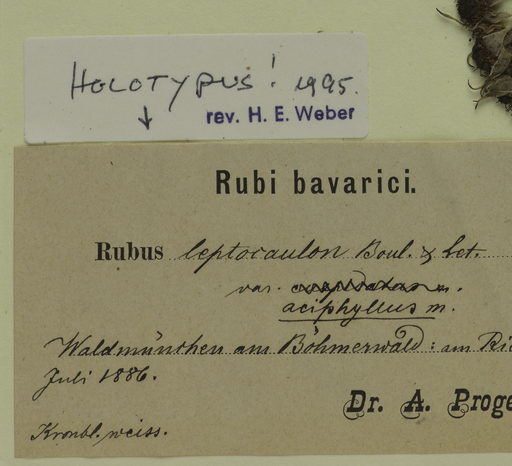 HOLOTYPUS! 1995.
↓ rev. H. E. Weber
Rubi bavarici.
Rubus leptocaulon Boul. & Let.
var. m.
aciphyllus m.
Waldmünchen am Böhmerwald: am
Juli 1886.
Dr. A. Proge
Kronbl. weiss.